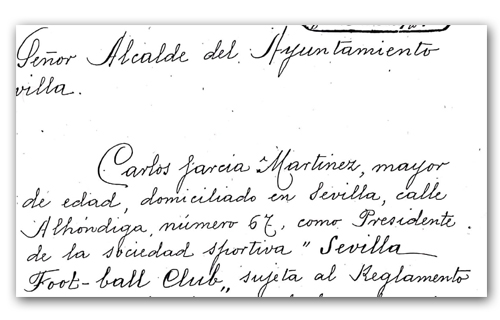 Señor Alcalde del Ayuntamiento
villa.
Carlos Garcia Martinez, mayor
de edad, domiciliado en Sevilla, calle
Alhóndiga, número 67, como Presidente
de la sociedad sportiva "Sevilla
Foot-ball Club„ sujeta al Reglamento